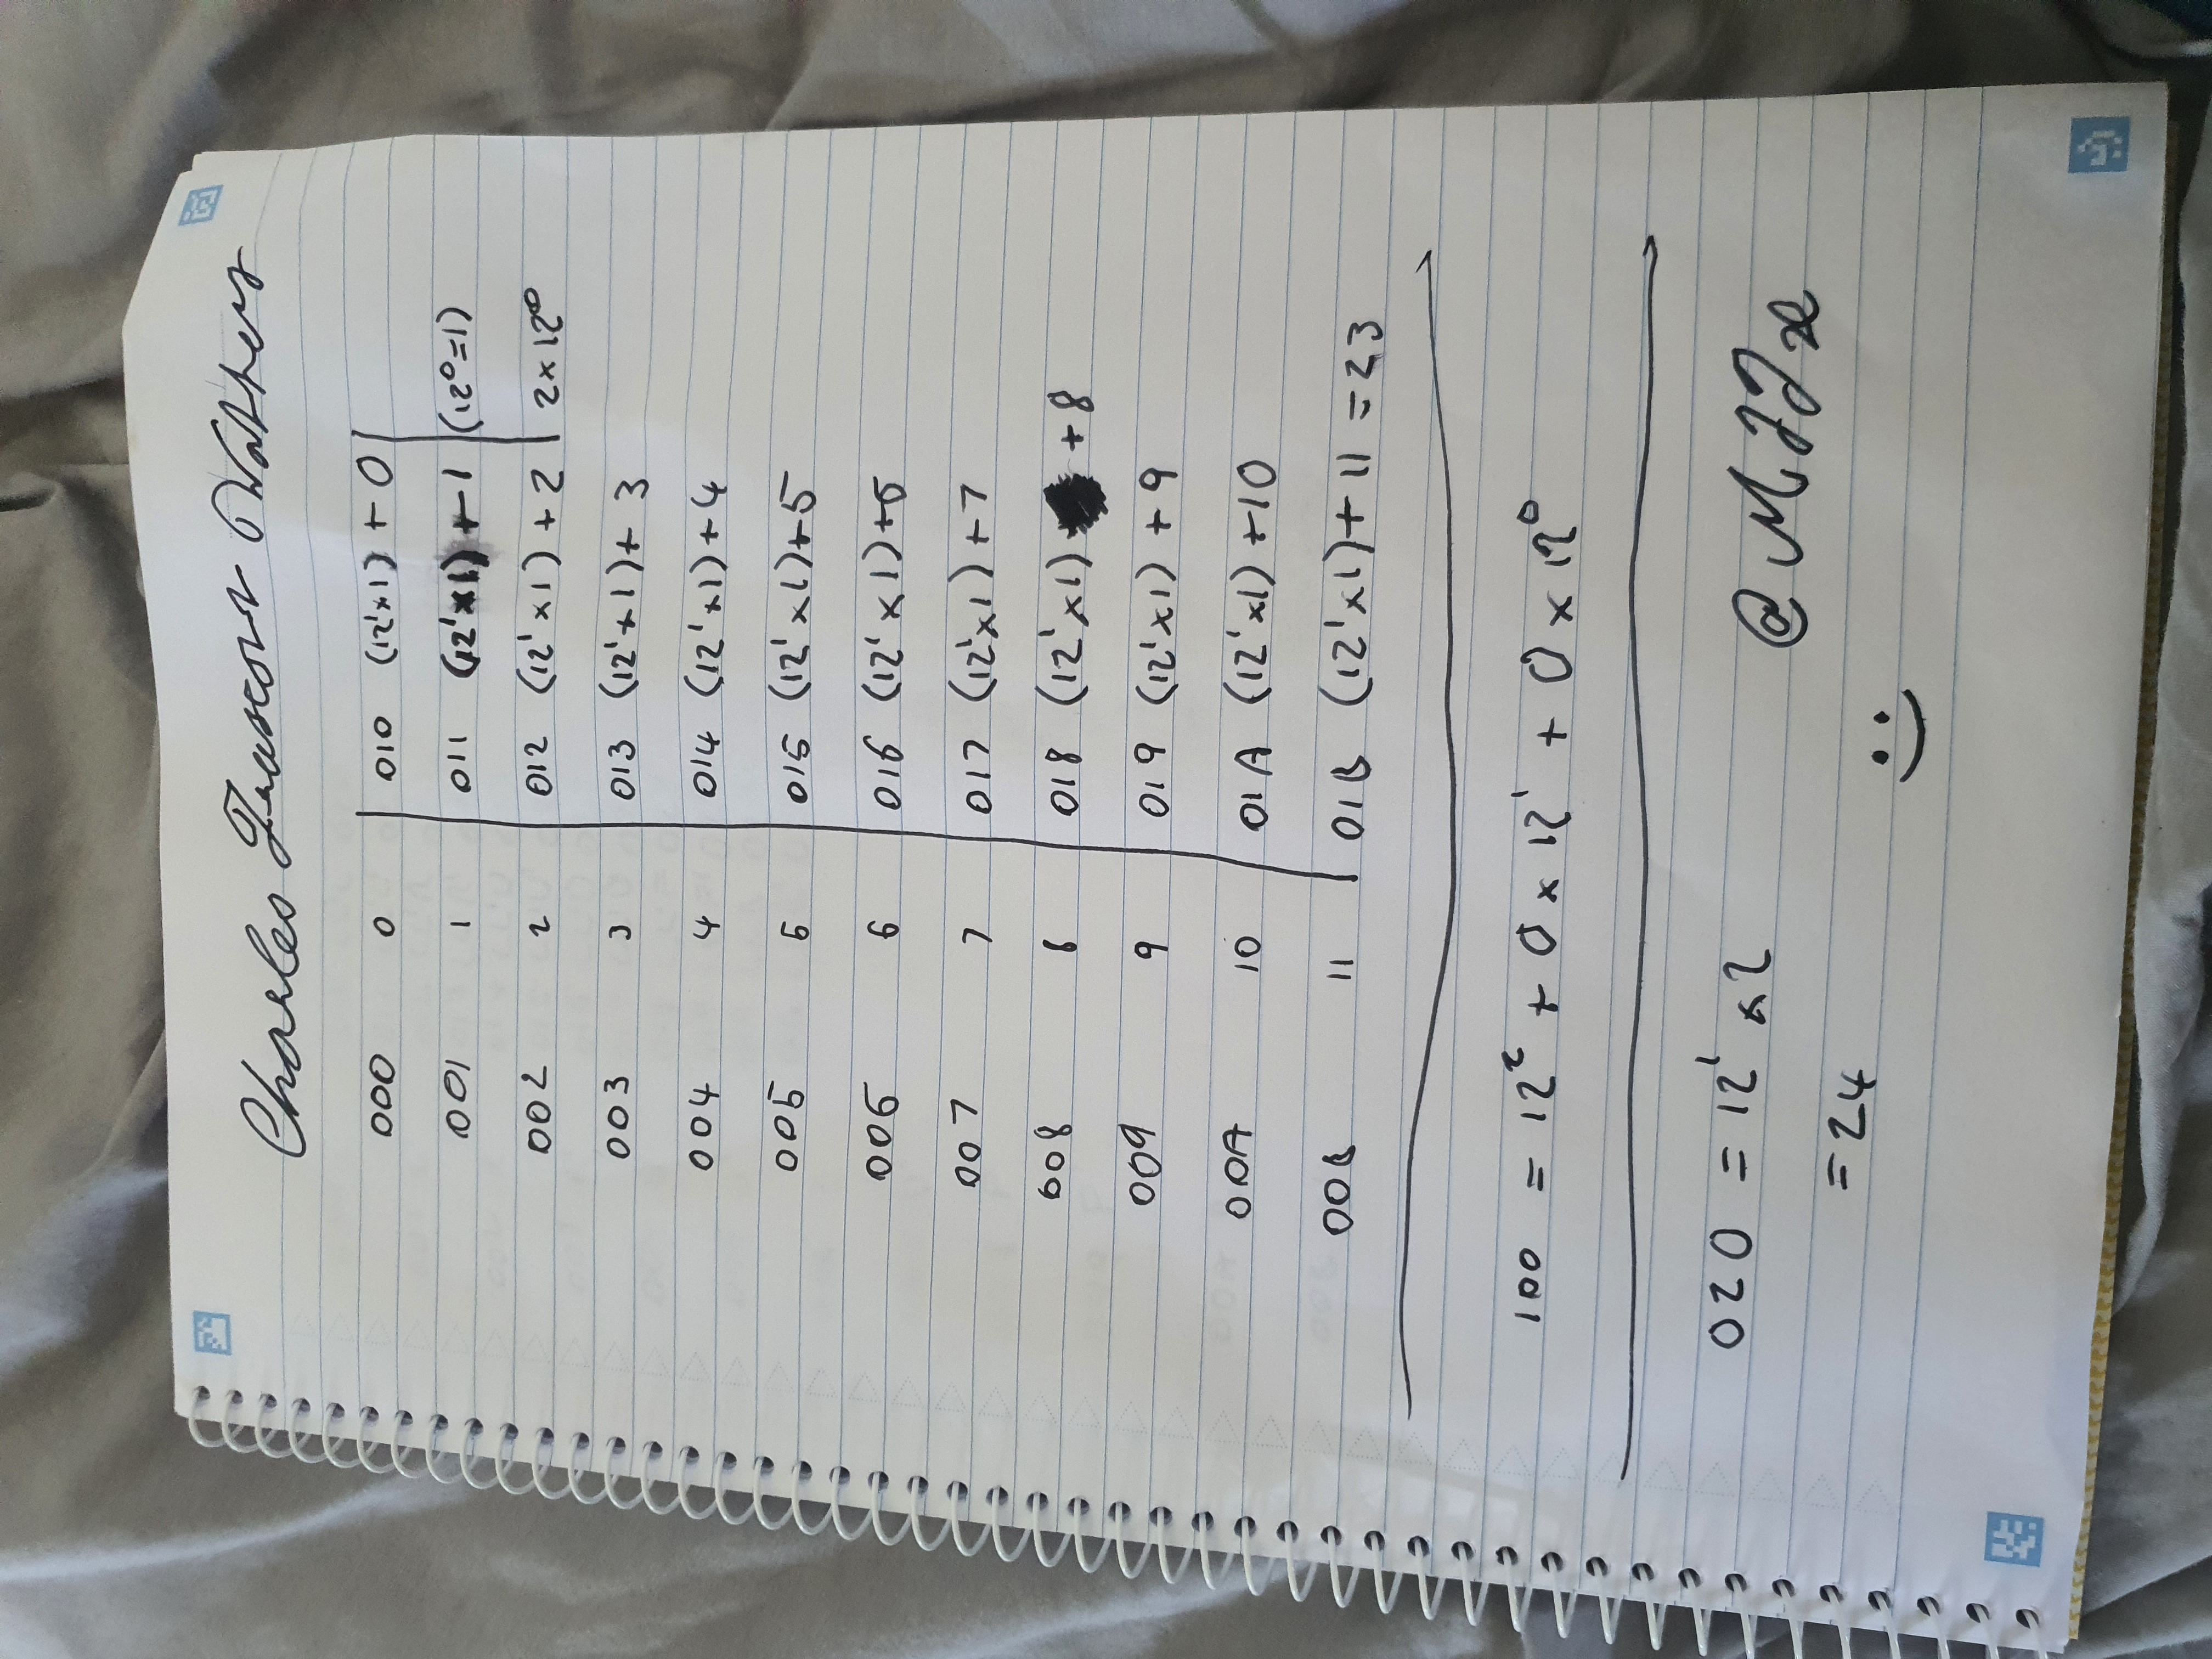 Charles
000 0 010 (12¹×1) + 0
001 1 011 (12¹×1) + 1 (12⁰=1)
002 2 012 (12¹×1) + 2 2×12⁰
003 3 013 (12¹+1)+ 3
004 4 014 (12¹×1)+4
005 5 015 (12¹×1)+5
006 6 016 (12¹×1)+6
007 7 017 (12¹×1)+7
008 8 018 (12¹×1) +8
009 9 019 (12¹×1) +9
00A 10 01A (12¹×1) +10
00B 11 01B (12¹×1)+ 11 =23
100 = 12² + 0 × 12¹ + 0 × 12⁰
020 = 12¹ ×2
= 24